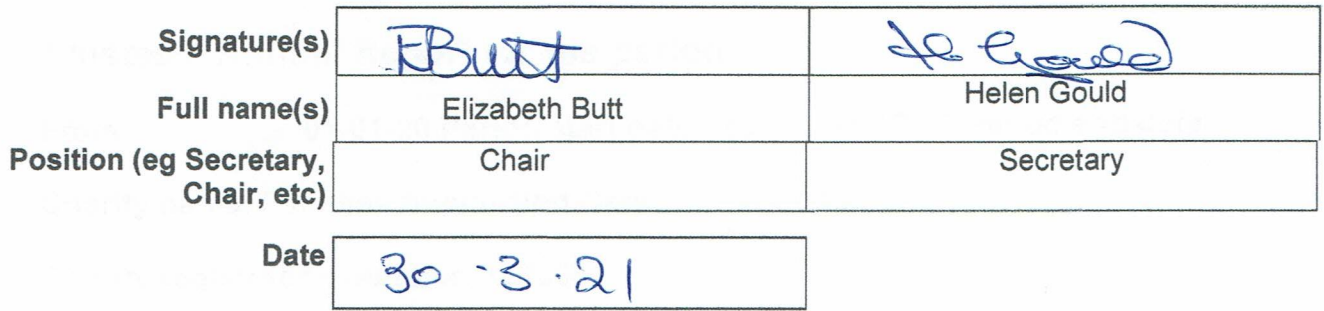 Signature(s) EButt H Gould
Full name(s) Elizabeth Butt Helen Gould
Position (eg Secretary, Chair Secretary
Chair, etc)
Date 30 · 3 · 21